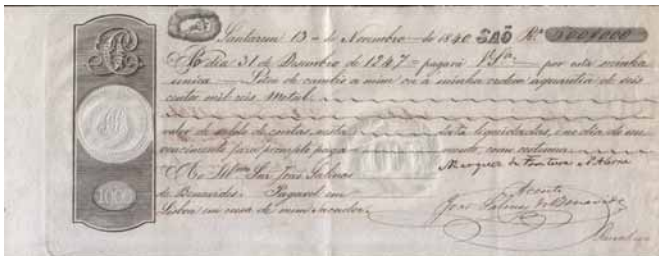 Santarem 13 de Novembro de 1840 SAÕ R.s 600$000
Ao dia 31 de Dezembro de 1847 pagará V.Sa. por esta minha
unica Letra de cambio a mim ou á minha ordem a quantia de seis
centos mil reis. Metal
valor de saldo de contas, nesta data liquidadas, e no dia do seu
vencimento fará prompto pagamento, como costuma.
Ao Ill.mo Snr. José Salinas
de Benavides. Pagavel em
Lisboa em casa de mim
Marquez de Fronteira
Aceito
José Salinas de Benavides
1000